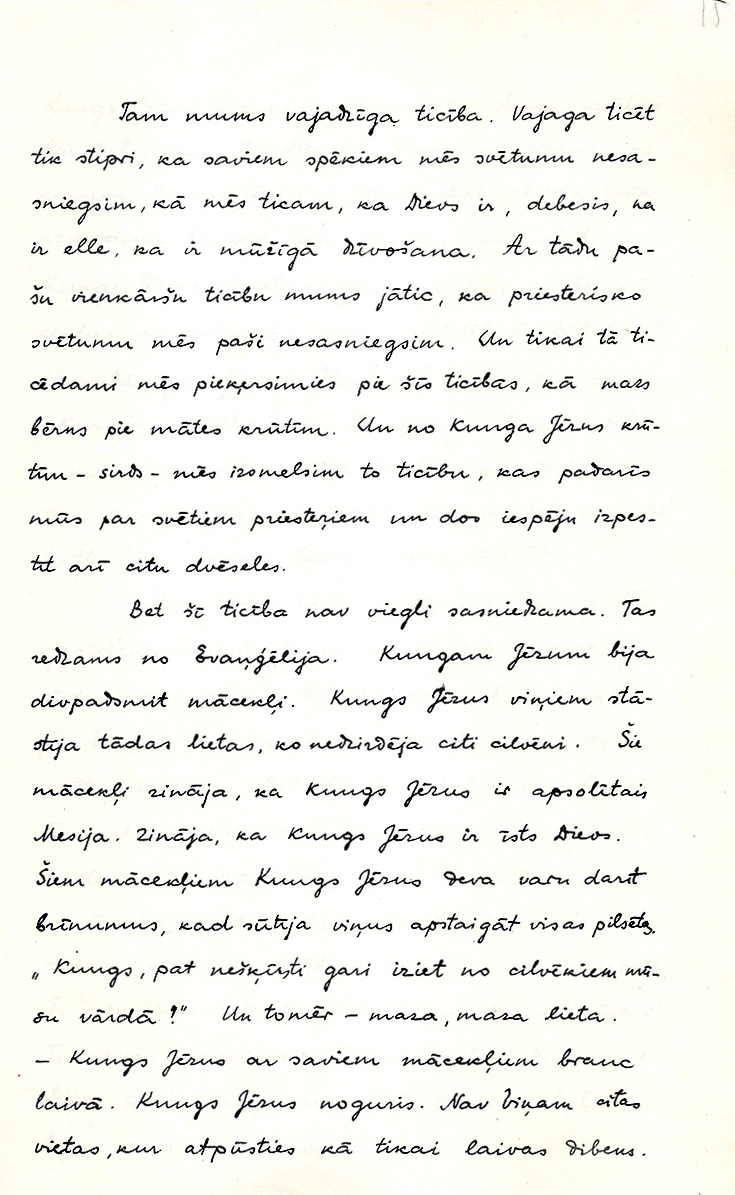 15
Tam mums vajadzīga ticība. Vajaga ticēt
tik stipri, ka saviem spēkiem mēs svētumu nesa-
sniegsim, kā mēs ticam, ka Dievs ir, debesis, ka
ir elle, ka ir mūžīgā dzīvošana. Ar tādu pa-
šu vienkāršu ticību mums jātic, ka priesterisko
svētumu mēs paši nesasniegsim. Un tikai tā ti-
cēdami mēs pieķersimies pie šīs ticības, kā mazs
bērns pie mātes krūtīm. Un no Kunga Jēzus krū-
tīm - sirds - mēs izsmelsim to ticību, kas padarīs
mūs par svētiem priesteŗiem un dos iespēju izpes-
tīt arī citu dvēseles.
Bet šī ticība nav viegli sasniedzama. Tas
redzams no Evaņģēlija. Kungam Jēzum bija
divpadsmit mācekļi. Kungs Jēzus viņiem stā-
stīja tādas lietas, ko nedzirdēja citi cilvēki. Šie
mācekļi zināja, ka Kungs Jēzus ir apsolītais
Mesija. Zināja, ka Kungs Jēzus ir īsts Dievs.
Šiem mācekļiem Kungs Jēzus deva varu darīt
brīnumus, kad sūtīja viņus apstaigāt visas pilsētas.
„Kungs, pat nešķīsti gari iziet no cilvēkiem mū-
su vārdā!" Un tomēr - maza, maza lieta.
- Kungs Jēzus ar saviem mācekļiem brauc
laivā. Kungs Jēzus noguris. Nav Viņam citas
vietas, kur atpūsties kā tikai laivas dibens.